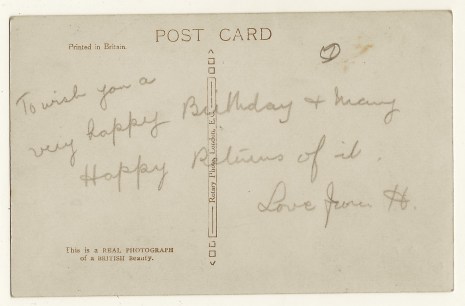 POST CARD
Printed in Britain.
To wish you a
very happy Birthday & Many
Happy Returns of it.
Love from H.
Rotary Photo, London, E.C.
This is a REAL PHOTOGRAPH
of a BRITISH Beauty.